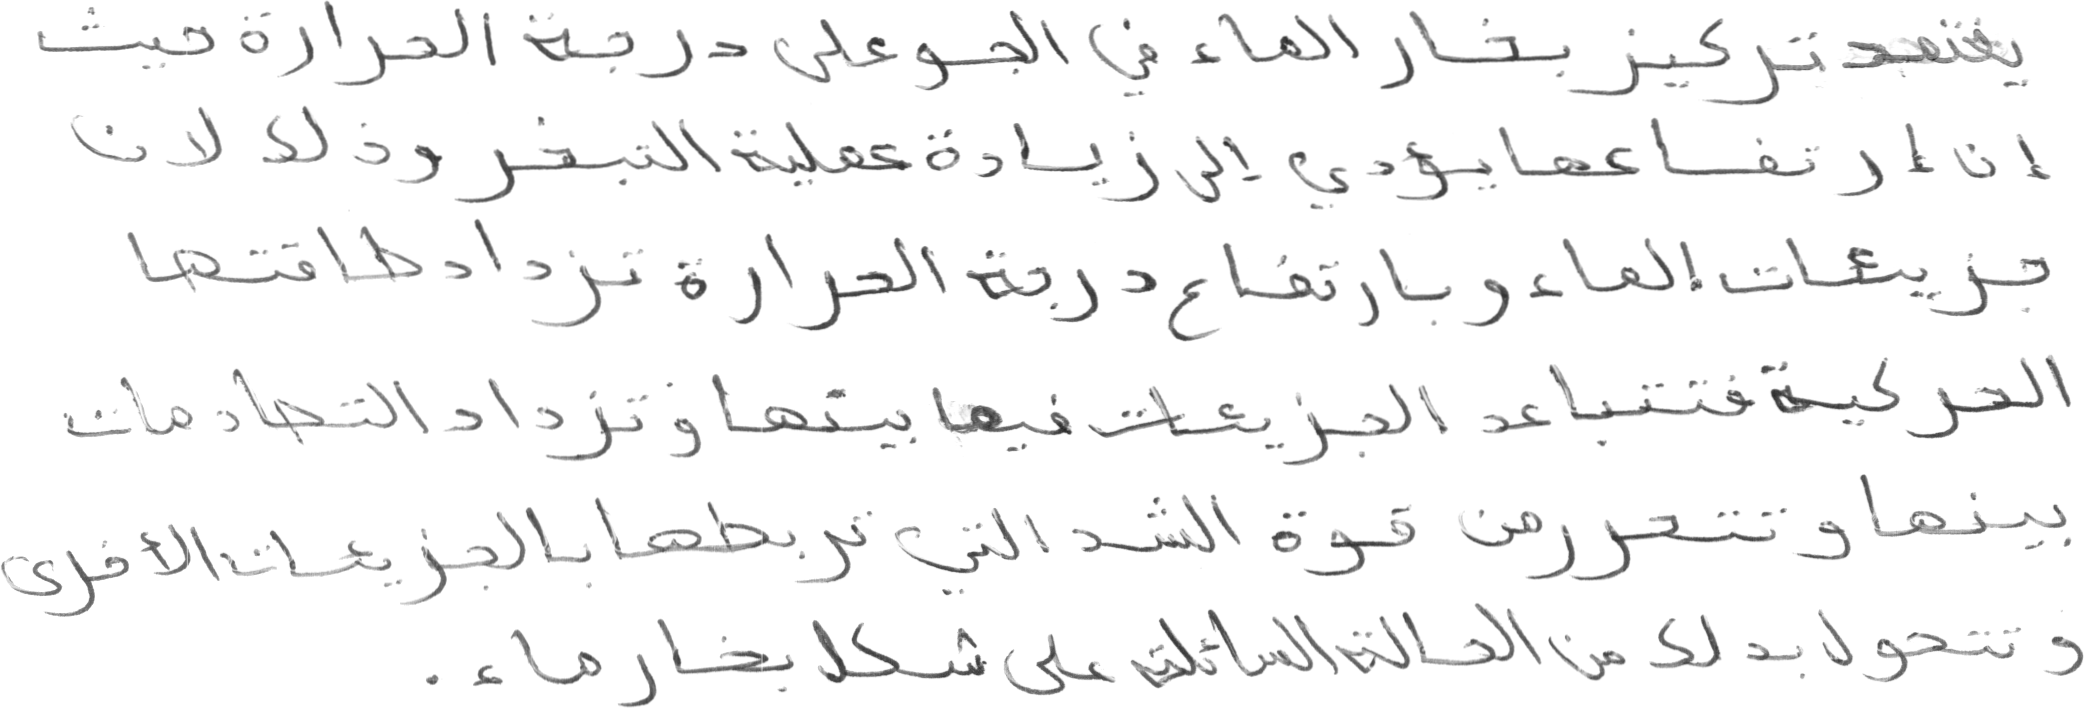 يعتمد تركيز بخار الماء في الجو على درجة الحرارة حيث
إن إرتفاعها يؤدي إلى زيادة عملية التبخر وذلك لان
جزيئات الماء و بارتفاع درجة الحرارة تزداد طاقتها
الحركية فتتباعد الجزيئات فيما بينها و تزداد التصادمات
بينها و تتحرر من قوة الشد التي تربطها بالجزيئات الأخرى
و تتحول بدلك من الحالة السائلة على شكل بخار ماء .